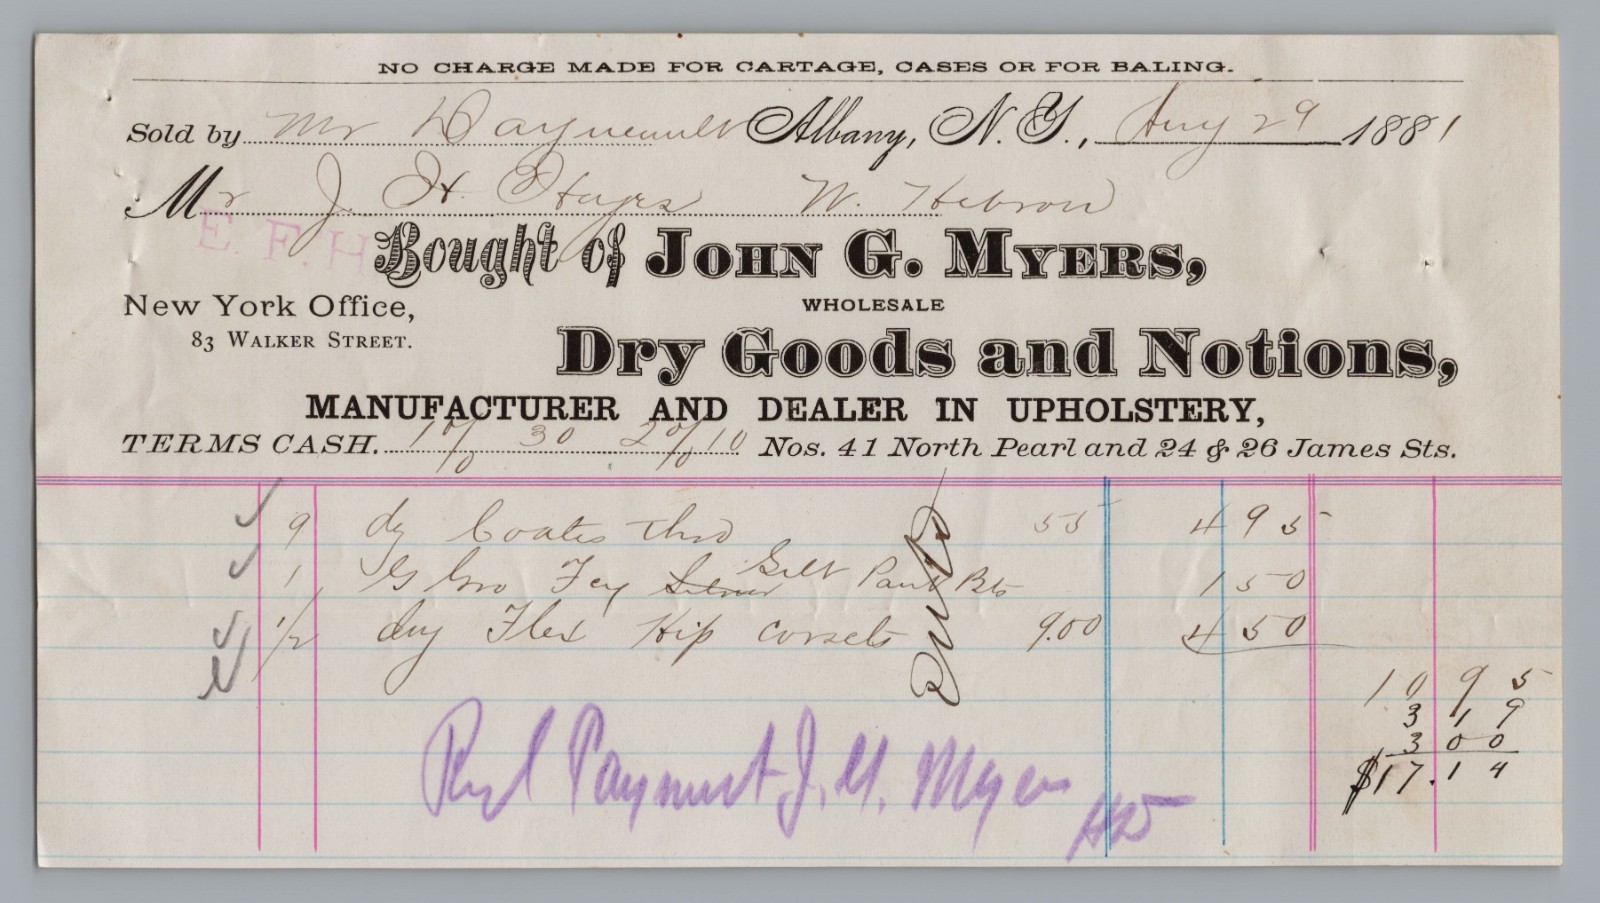 NO CHARGE MADE FOR CARTAGE, CASES OR FOR BALING.
Sold by Mr Albany, N. Y., Aug 29 1881
Mr J. H. Hays W. Hebron
E. F. H
Bought of JOHN G. MYERS,
New York Office,
WHOLESALE
83 WALKER STREET.
Dry Goods and Notions,
MANUFACTURER AND DEALER IN UPHOLSTERY,
TERMS CASH. 1% 30 2% 10 Nos. 41 North Pearl and 24 & 26 James Sts.
9 dz Coates Thd 55 4 95
1 G Gro Fcy Silver Gilt Pant Bts 1 50
1/2 dz Flex Hip Corsets 9.00 4 50
10 95
3 19
3 00
$17.14
Recd Payment J. G. Myers